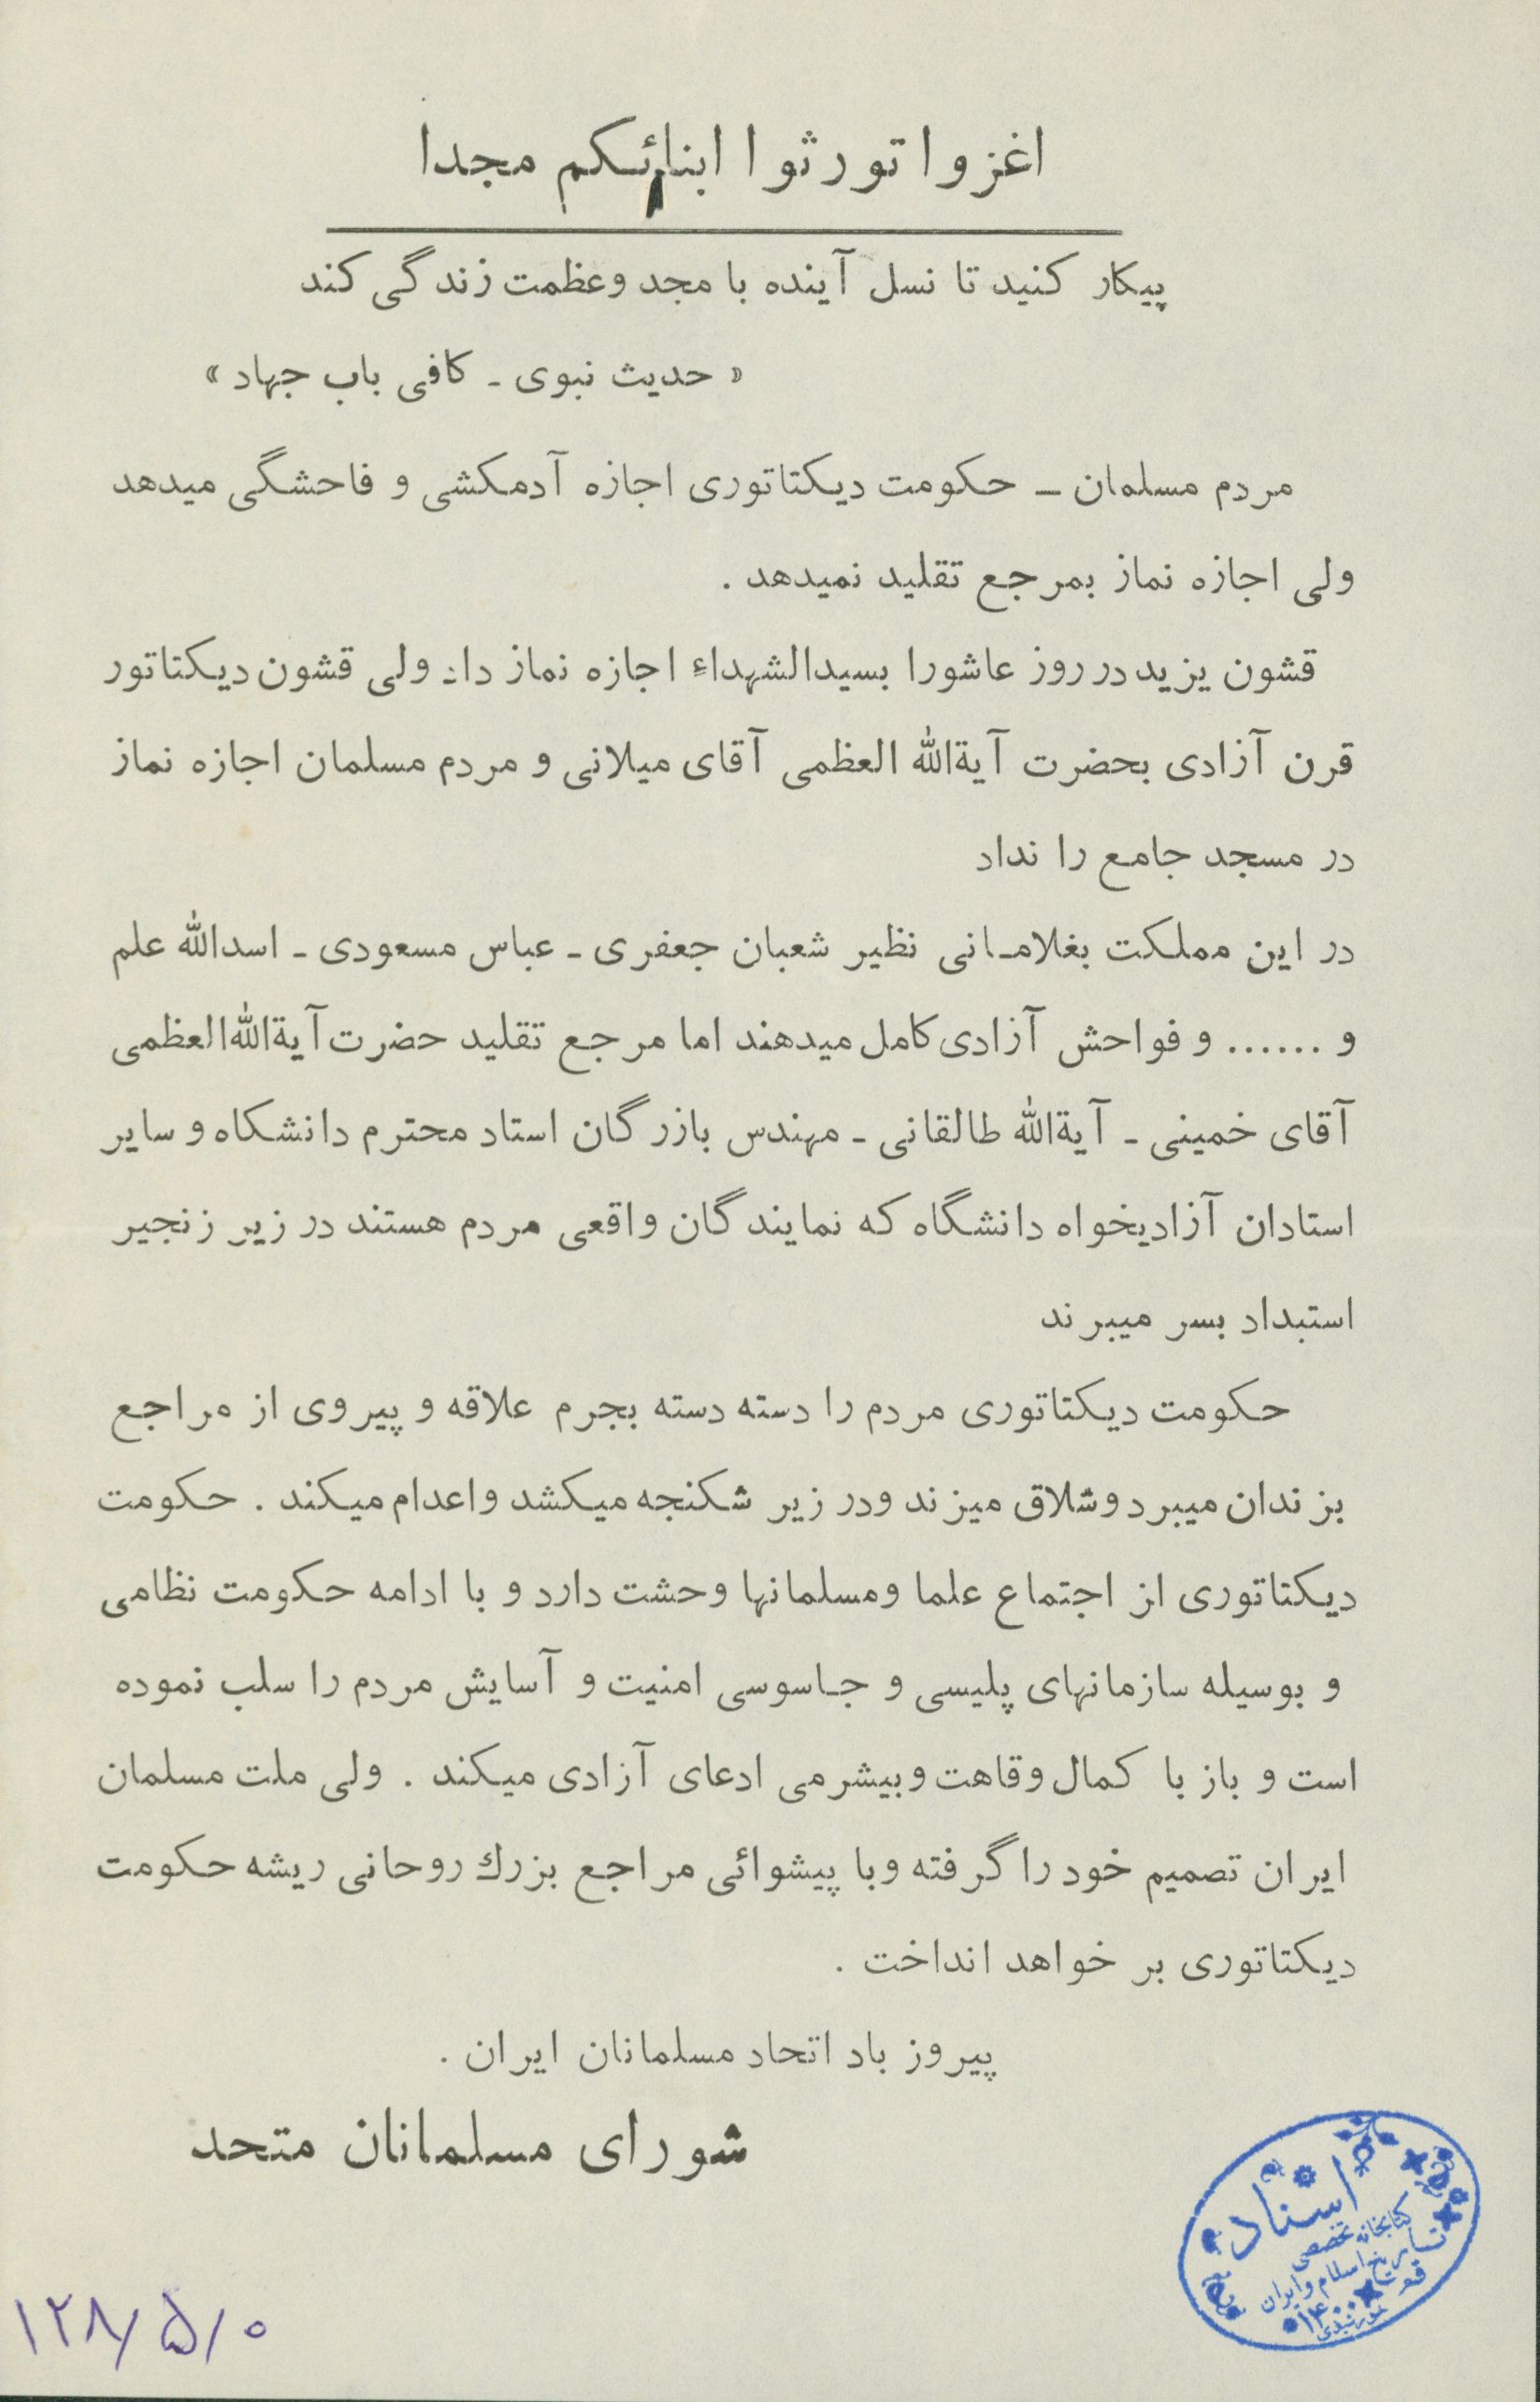 اغزوا تورثوا ابنائکم مجدا
پیکار کنید تا نسل آینده با مجد و عظمت زندگی کند
« حدیث نبوی ـ کافی باب جهاد »
مردم مسلمان ـ حکومت دیکتاتوری اجازه آدمکشی و فاحشگی میدهد
ولی اجازه نماز بمرجع تقلید نمیدهد .
قشون یزید در روز عاشورا بسیدالشهداء اجازه نماز داد ولی قشون دیکتاتور
قرن آزادی بحضرت آیةالله العظمی آقای میلانی و مردم مسلمان اجازه نماز
در مسجد جامع را نداد
در این مملکت بغلامانی نظیر شعبان جعفری ـ عباس مسعودی ـ اسدالله علم
و ...... و فواحش آزادی کامل میدهند اما مرجع تقلید حضرت آیةالله العظمی
آقای خمینی ـ آیةالله طالقانی ـ مهندس بازرگان استاد محترم دانشکاه و سایر
استادان آزادیخواه دانشگاه که نمایندگان واقعی مردم هستند در زیر زنجیر
استبداد بسر میبرند
حکومت دیکتاتوری مردم را دسته دسته بجرم علاقه و پیروی از مراجع
بزندان میبرد و شلاق میزند ودر زیر شکنجه میکشد و اعدام میکند . حکومت
دیکتاتوری از اجتماع علما ومسلمانها وحشت دارد و با ادامه حکومت نظامی
و بوسیله سازمانهای پلیسی و جاسوسی امنیت و آسایش مردم را سلب نموده
است و باز با کمال وقاهت وبیشرمی ادعای آزادی میکند . ولی ملت مسلمان
ایران تصمیم خود را گرفته وبا پیشوائی مراجع بزرك روحانی ریشه حکومت
دیکتاتوری بر خواهد انداخت .
پیروز باد اتحاد مسلمانان ایران .
شورای مسلمانان متحد
اسناد
کتابخانه تخصصی
تاریخ اسلام و ایران
قم
۱۲۸/۵/۰